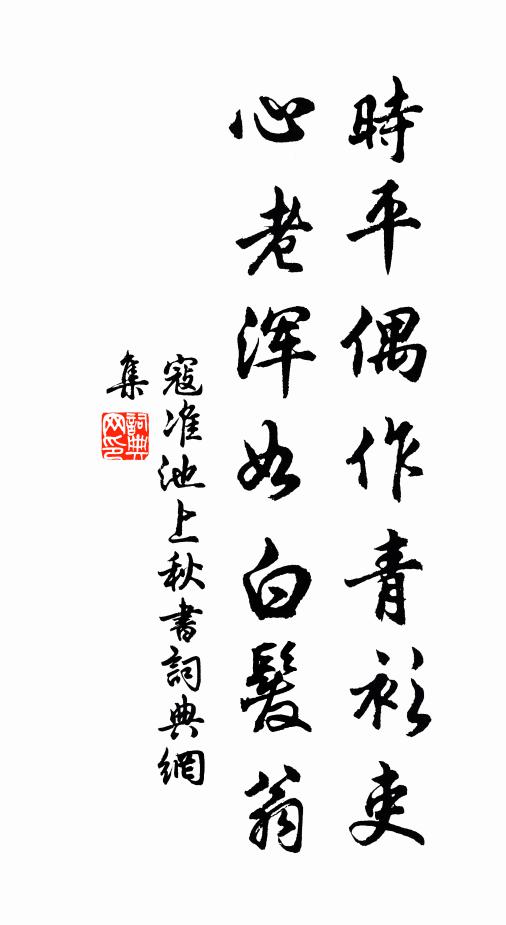 時平偶作青衫吏
心老渾如白髮翁
寇准池上秋書詞典網
集
詞典
网印